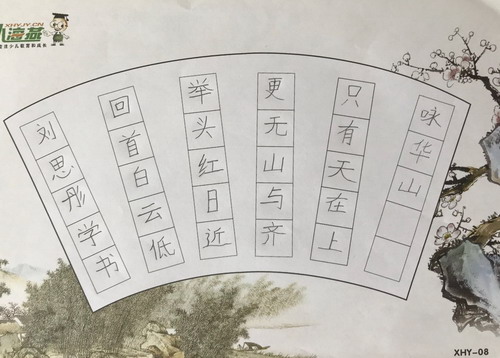 咏华山
只有天在上
更无山与齐
举头红日近
回首白云低
刘思彤学书
XHYJY.CN
小海燕
XHY-08